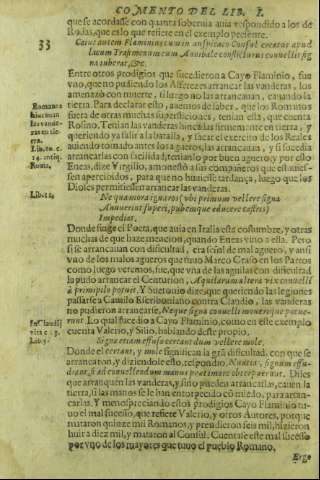 COMENTO DEL LIB. I.
que se acordasse con quanta soberuia auia respondido a los de
Rodas, que es lo que refiere en el exemplo presente.
33
Caius autem Flaminius cum in auspicato Consul creatus apud
lacum Trasimenum cum Annibale conflicturus conuelli sig
na iuberat, &c.
Entre otros prodigios que sucedieron a Cayo Flaminio, fue
vno, que no pudiendo los Alferezes arrancar las vanderas, los
amenazó con muerte, si luego no las arrancauan, cauando la
tierra. Para declarar esto, auemos de saber, que los Romanos
fuera de otras muchas supersticiones, tenian esta, que cuenta
Rosino. Tenian las vanderas hincadas firmemente en tierra, y
queriendo ya salir a la batalla, y sacar el exercito de los Reales
auiendo tomado antes los agueros, las arrancauan, y si sucedia
arrancarlas con facilidad, tenianlo por buen aguero, y por esto
Eneas, dize Virgilio, amonestò a sus compañeros que estuuies-
sen apercebidos, para que no huuiesse tardança, luego que los
Dioses permitiessen arrancar las vanderas.
Romanos
hincauan
las vande
ras en tie
rra.
Lib. 10. c.
14. antiq.
Rom.
Lib. 11.
Ne qua mora ignaros (vbi primum vellere signa
Annuerint superi, pubemque educere castris)
Impediat,
Donde finge el Poeta, que auia en Italia esta costumbre, y otras
muchas de que haze mencion, quando Eneas vino a ella. Pero
si se arrancauan con dificultad, era señal de mal aguero, y assi
vno de los malos agueros que tuuo Marco Craso en los Partos
como luego veremos, fue, que vna de las aguilas con dificultad
la pudo arrancar el Centurion, Aquilarum altera vix conuelli
à primipilo potuit. Y Suetonio dize, que queriendo las legiones
passarse a Camilo Escriboniano contra Claudio, las vanderas
no pudieron arrancarse, Neque signa conuelli mouerique potue-
runt. Lo qual sucedio a Cayo Flaminio, como en este exemplo
cuenta Valerio, y Silio, hablando deste propio,
In Claudi
vita c. 13.
Lib. 5.
Signa etiam effusa certant dum vellere mole.
Donde el certant, y mole significan la grã dificultad, con que se
arrancaron, y diziendole esto, respondio
Dizies
que arranquen las vanderas, y si no pueden arrancarlas, cauen la
tierra, si las manos se le han entorpecido cõ miedo, para arran-
carlas. Y menospreciando estos prodigios Cayo Flaminio tu-
uo el mal sucesso, que refiere Valerio, y otros Autores, porque
mataron quinze mil Romanos, y prendieron seis mil, higieron
huir a diez mil, y mataron al Consul. Cuentase este mal sucesso
por vno de los mayores que tuuo el pueblo Romano,
Ergo